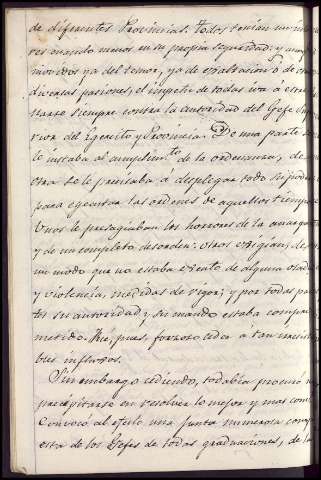 de diferentes Provincias. todos tenian un inte
res cuando menos en su propia seguridad: y aunq
movidos ya del temor, ya de exaltacion ó de
diversas pasiones, el impetu de todas iva á estre
narse siempre contra la autoridad del Gefe Supe
rior del Egercito y Provincia. De una parte se
le instaba al cumplim.to de la ordenanza, de
otra se le precisaba á desplegar todo su poder
para egecutar las ordenes de aquellos tiempos
Unos le presagiaban los horrores de la anarquia
y de un completo desorden: otros exigian, de
un modo que no estaba exento de alguna osadia
y violencia, medidas de vigor; y por todas par
tes su autoridad y su mando estaba compro
metido. Fué, pues, forzoso ceder a tan irresisti
bles influxos.
Sin embargo cediendo, todabia procuró no
precipitarse en resolver lo mejor y mas
Convocó al efecto una junta numerosa comp
esta de los Gefes de todas graduaciones, de